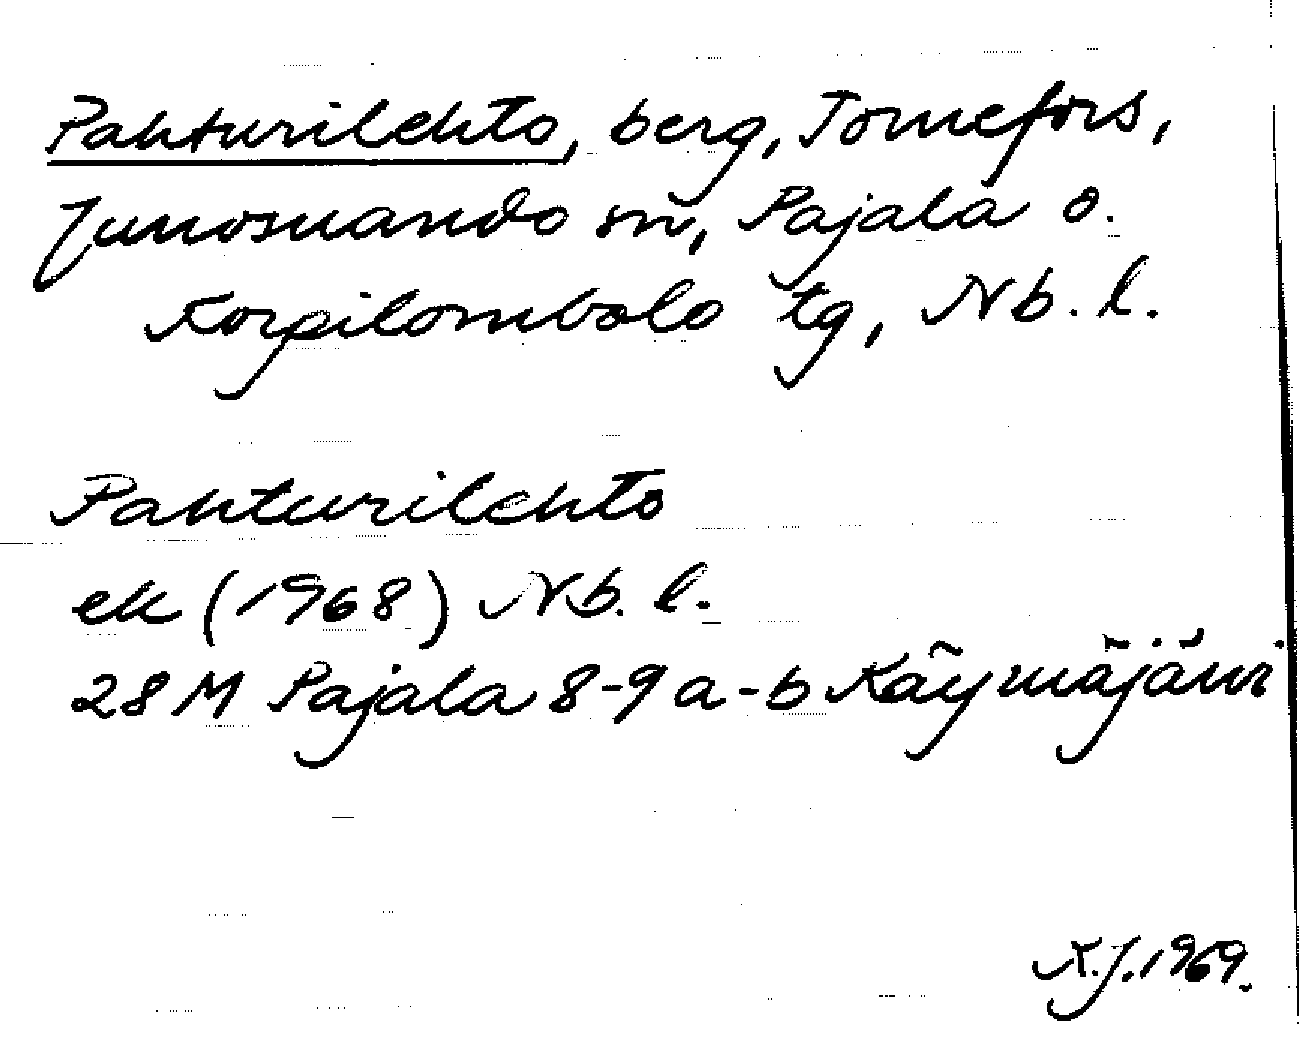 Pahturilehto, berg, Tornefors,
Junosuando sn, Pajala o.
Korpilombolo tg, Nb. l.
Pahturilehto
ek (1968) Nb. l.
28 M Pajala 8-9 a-b Käymäjärvi
K.J. 1969.